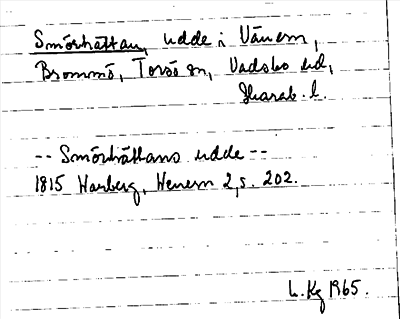 Smörhättan, udde i Vänern,
Brommö, Torsö sn, Vadsbo hd,
Skarab. l.
-- Smörhättans udde --
1815 Harberg, Wenern 2, s. 202.
L. Kg 1965.